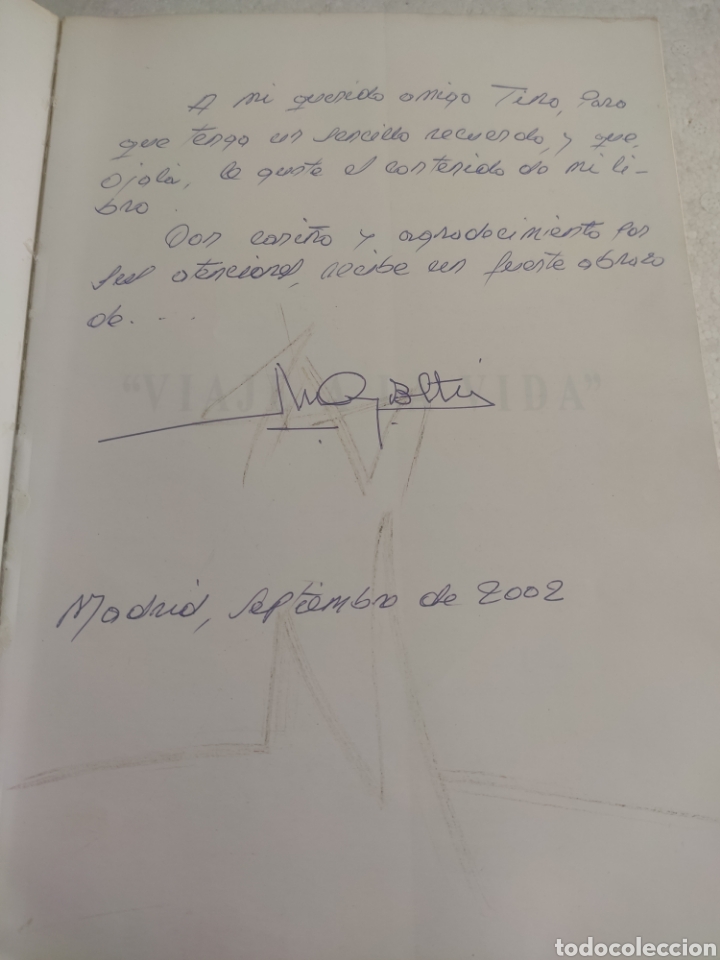 A mi querido amigo Tino, para
que tenga un sencillo recuerdo, y que,
ojalá, le guste el contenido de mi li-
bro.
Con cariño y agradecimiento por
sus atenciones, recibe un fuerte abrazo
de....
"VIAJE VIDA"
Madrid, septiembre de 2002
todocoleccion